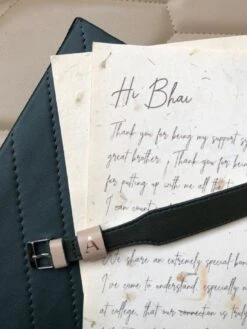 Hi Bhai
Thank you for being my support s
great brother. Thank you for being
for putting up with me all th
I can count
A
We share an extremely special ban
I've come to understand, especially n
at college, that our connection is tru